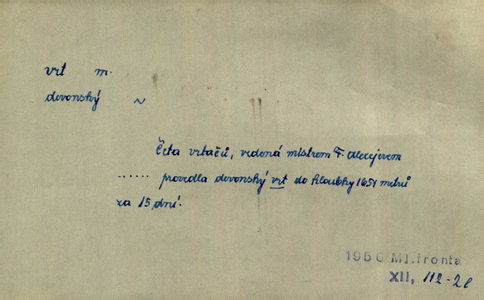 vrt m.
devonský ~
Četa vrtačů, vedená mistrem F. Alexejevem
...... provedla devonský vrt do hloubky 1651 metrů
za 15 dní.
1950 Ml.fronta
XII, 112-2c